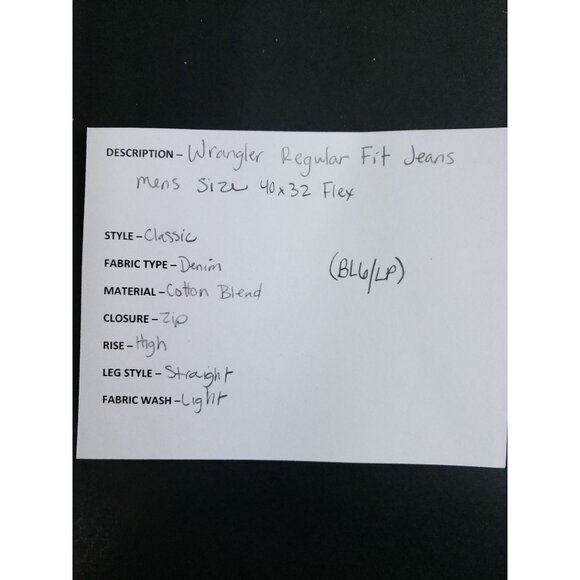 DESCRIPTION – Wrangler Regular Fit Jeans
mens Size 40x32 Flex
STYLE – Classic
FABRIC TYPE – Denim
(BL6/LP)
MATERIAL – Cotton Blend
CLOSURE – Zip
RISE – High
LEG STYLE – Straight
FABRIC WASH – Light